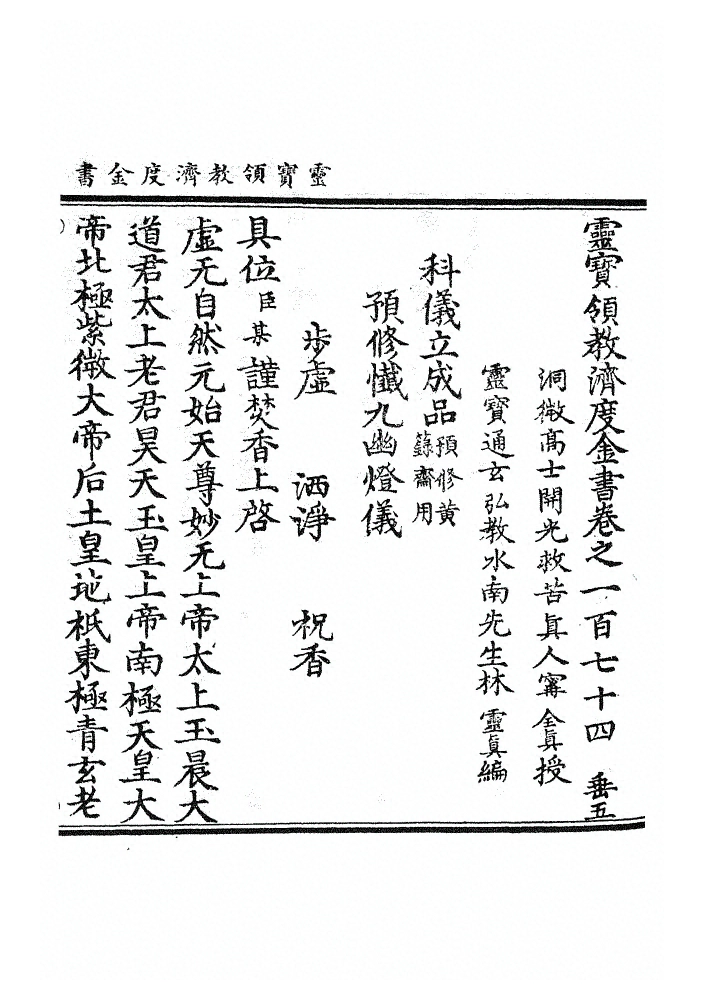 靈寶領教濟度金書
靈寶領教濟度金書卷之一百七十四 垂五
洞微髙士開光救苦眞人甯 全眞授
靈寶通玄弘教水南先生林 靈眞編
科儀立成品 預修黄籙齋用
預修懺九幽燈儀
步虛 洒淨 祝香
具位臣某謹焚香上啓
虛无自然元始天尊妙无上帝太上玉晨大
道君太上老君昊天玉皇上帝南極天皇大
帝北極紫微大帝后土皇地祇東極青玄老